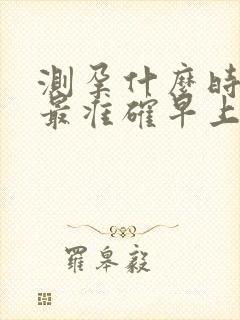 測孕什麼時
最准確早上
羅皋毅